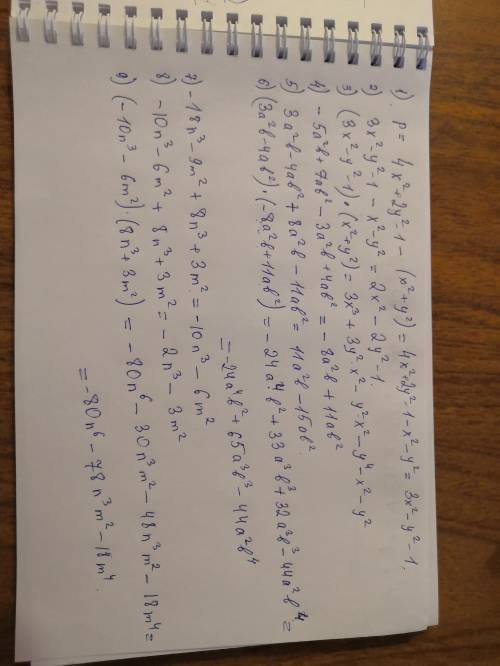 1) P = 4x²+2y²-1 - (x²+y²) = 4x²+2y²-1-x²-y² = 3x²-y²-1.
2) 3x²-y²-1 - x²-y² = 2x²-2y²-1.
3) (3x²-y²-1)·(x²+y²) = 3x³+3y²x²-y²x²-y⁴-x²-y²
4) -5a²b+7ab²-3a²b+4ab² = -8a²b+11ab²
5) 3a²b-4ab²+8a²b-11ab² = 11a²b-15ab²
6) (3a²b-4ab²)·(-8a²b+11ab²) = -24a⁴b²+33a³b³+32a³b³-44a²b⁴ =
= -24a⁴b²+65a³b³-44a²b⁴
7) -18n³-9m²+8n³+3m² = -10n³-6m²
8) -10n³-6m²+8n³+3m² = -2n³-3m²
9) (-10n³-6m²)·(8n³+3m²) = -80n⁶-30n³m²-48n³m²-18m⁴ =
= -80n⁶-78n³m²-18m⁴.